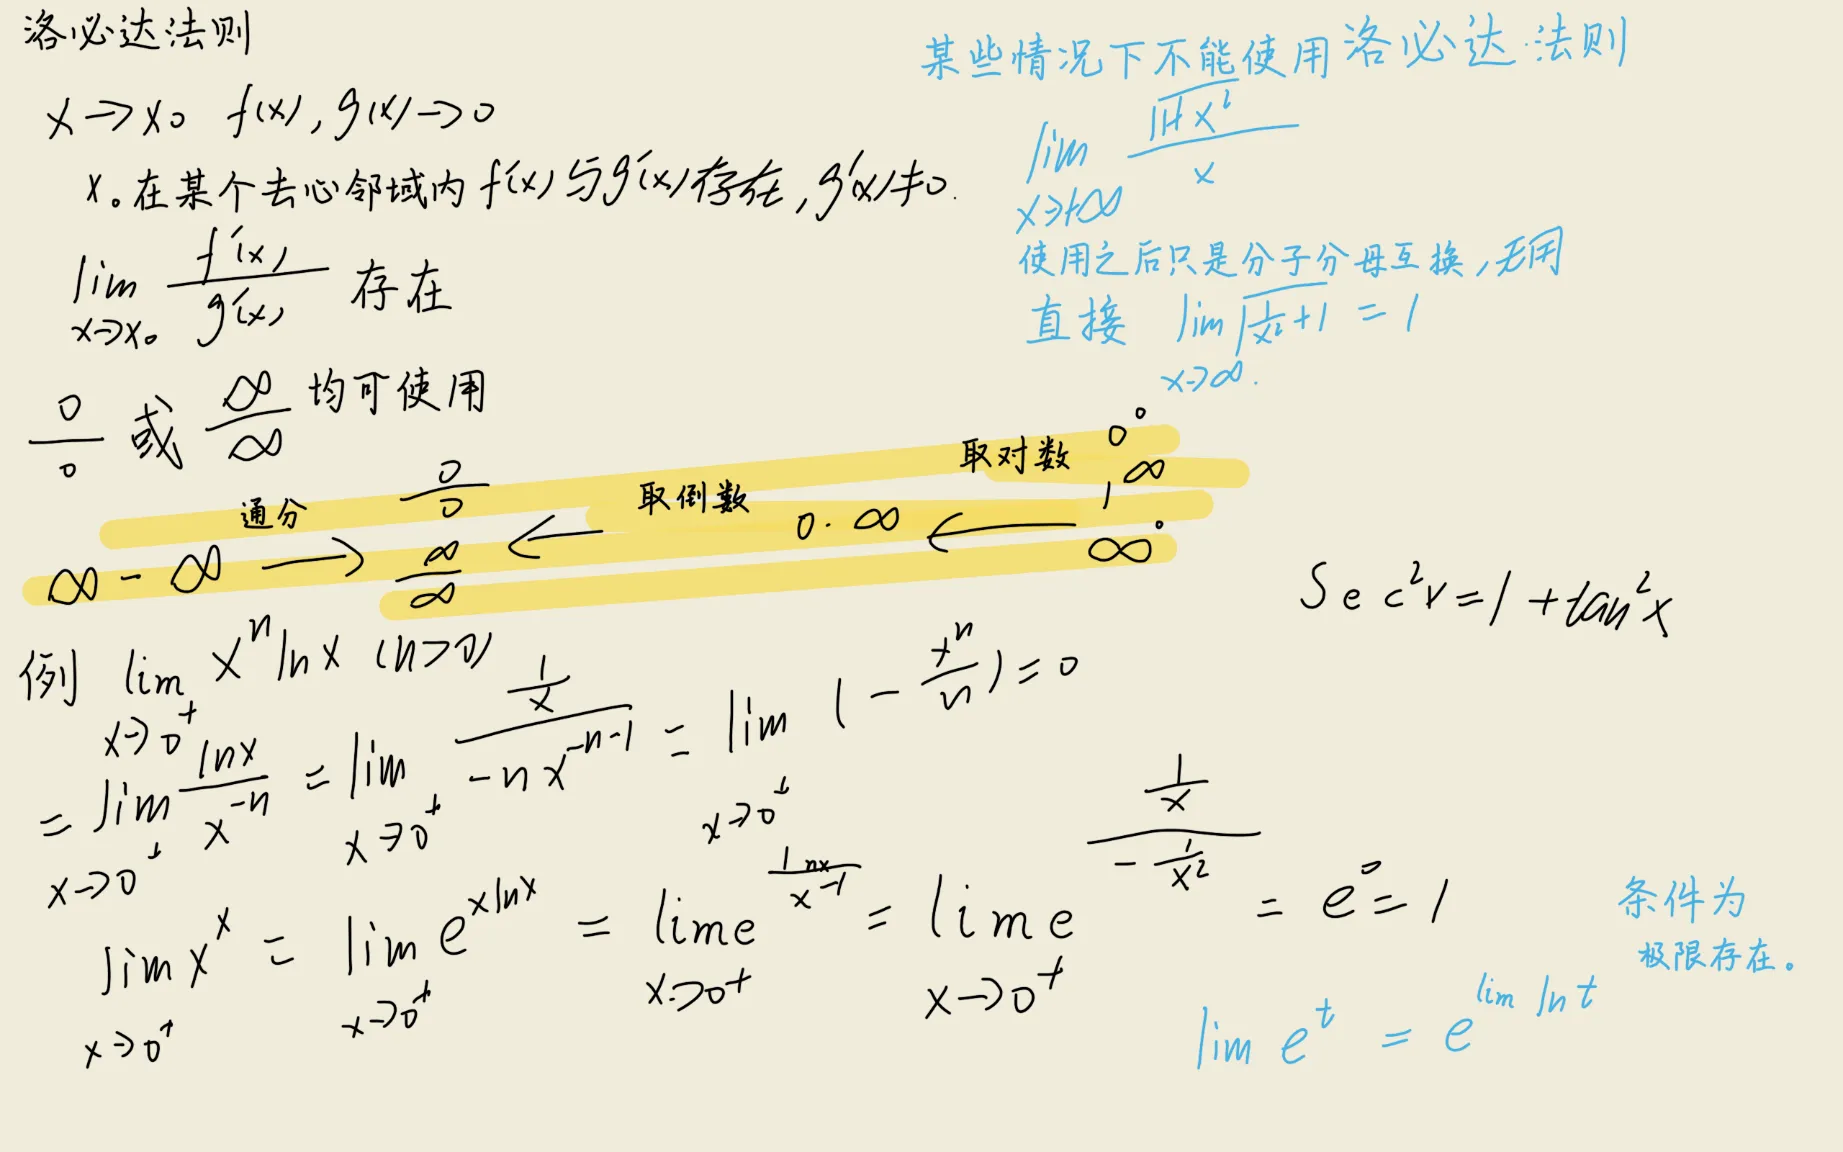 洛必达法则
x→x₀ f(x),g(x)→0
x₀在某个去心邻域内f'(x)与g'(x)存在,g'(x)≠0.
lim x→x₀ f'(x)/g'(x) 存在
0/0 或 ∞/∞ 均可使用
某些情况下不能使用洛必达法则
lim x→+∞ √(1+x²)/x
使用之后只是分子分母互换,无用
直接 lim x→∞. √(1/x²+1) = 1
通分 0/0 取倒数 取对数 0⁰
1^∞
∞-∞ → ∞/∞ ← 0·∞ ← ∞⁰
Sec²x=1+tan²x
例 lim x→0⁺ xⁿlnx (n>0)
= lim x→0⁺ lnx/x⁻ⁿ = lim x→0⁺ (1/x)/(-nx⁻ⁿ⁻¹) = lim x→0⁺ (-xⁿ/n)=0
lim x→0⁺ x^x = lim x→0⁺ e^(xlnx) = lim x→0⁺ e^(lnx/x⁻¹) = lim x→0⁺ e^((1/x)/(-1/x²)) = e⁰=1
条件为
极限存在。
lim e^t = e^(lim ln t)